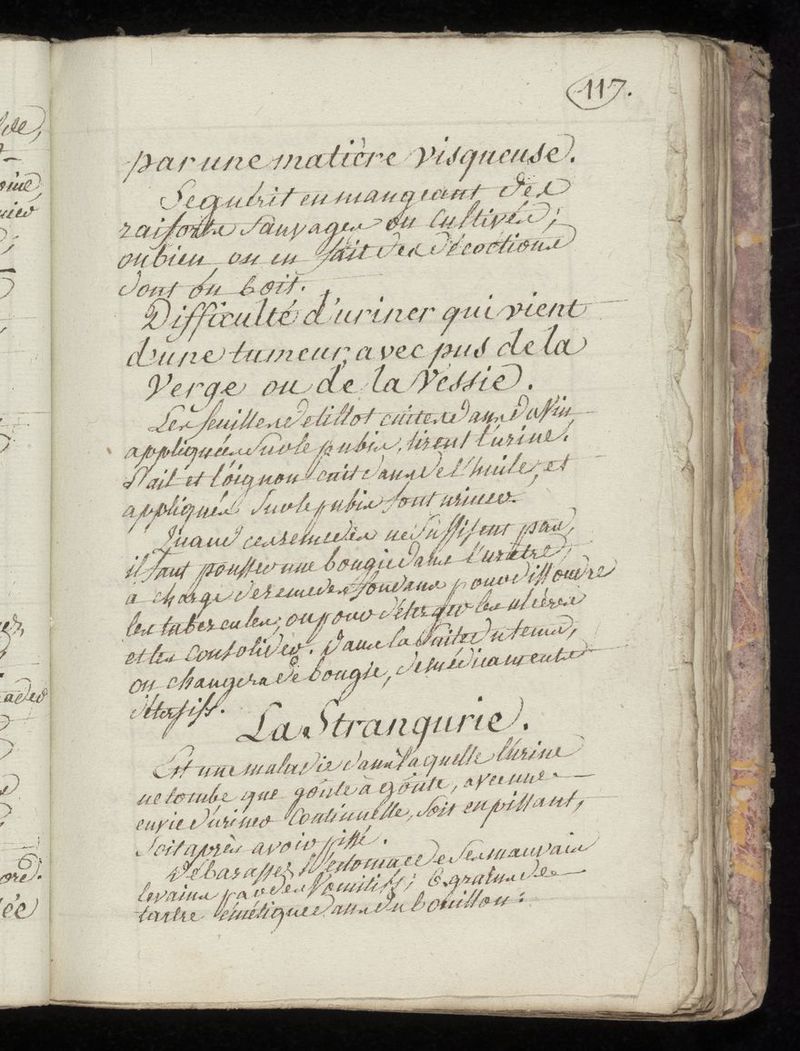 117.
par une matière visqueuse.
Se guérit en mangeant des
raiforts sauvages ou cultivés;
ou bien, on en fait des décoctions
dont on boit.
Difficulté d'uriner qui vient
d'une tumeur, avec pus de la
verge ou de la vessie.
Les feuilles de tillot cuites dans du vin
appliquées sur le pubis, tirent l'urine.
L'ail et l'oignon cuit dans de l'huile, et
appliqués sur le pubis font uriner.
Quand ces remedes ne suffisent pas,
il faut pousser une bougie dans l'uretre,
a charge de remedes fondans pour dissoudre
les tubercules, ou pour déterger les ulcéres
et les consolider. dans la suite du tems,
on changera de bougie, de médicaments
détersifs.
La Strangurie.
Est une maladie dans laquelle l'urine
ne tombe que goute à goute, avec une
envie d'uriner continuelle, soit en pissant,
soit après avoir pissé.
Débarasser l'estomac de ses mauvais
levains par des vomitifs; 6 grains de
tartre émétique dans du bouillon: